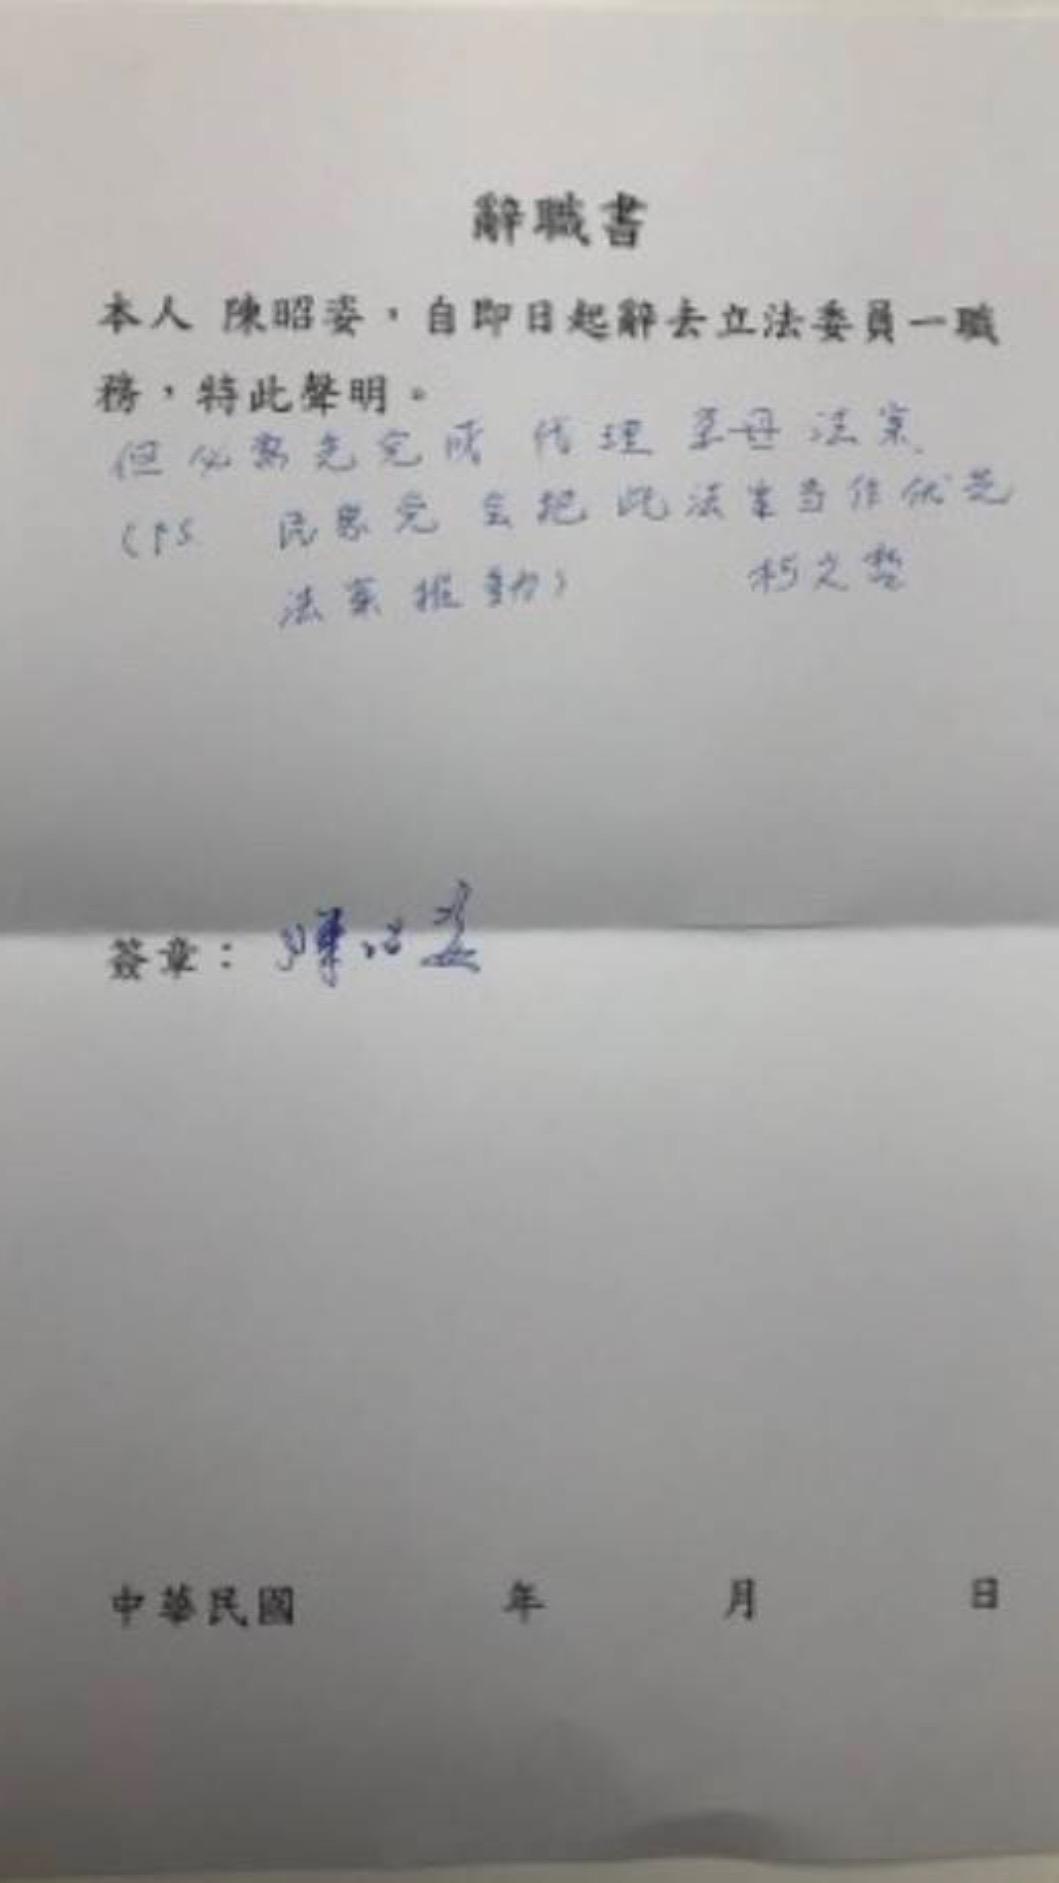 辭職書
本人 陳昭姿，自即日起辭去立法委員一職
務，特此聲明。
但必需先完成 代理孕母法案.
(PS 民眾党会把此法案当作优先
法案推動) 柯文哲
簽章： 陳昭姿
中華民國 年 月 日